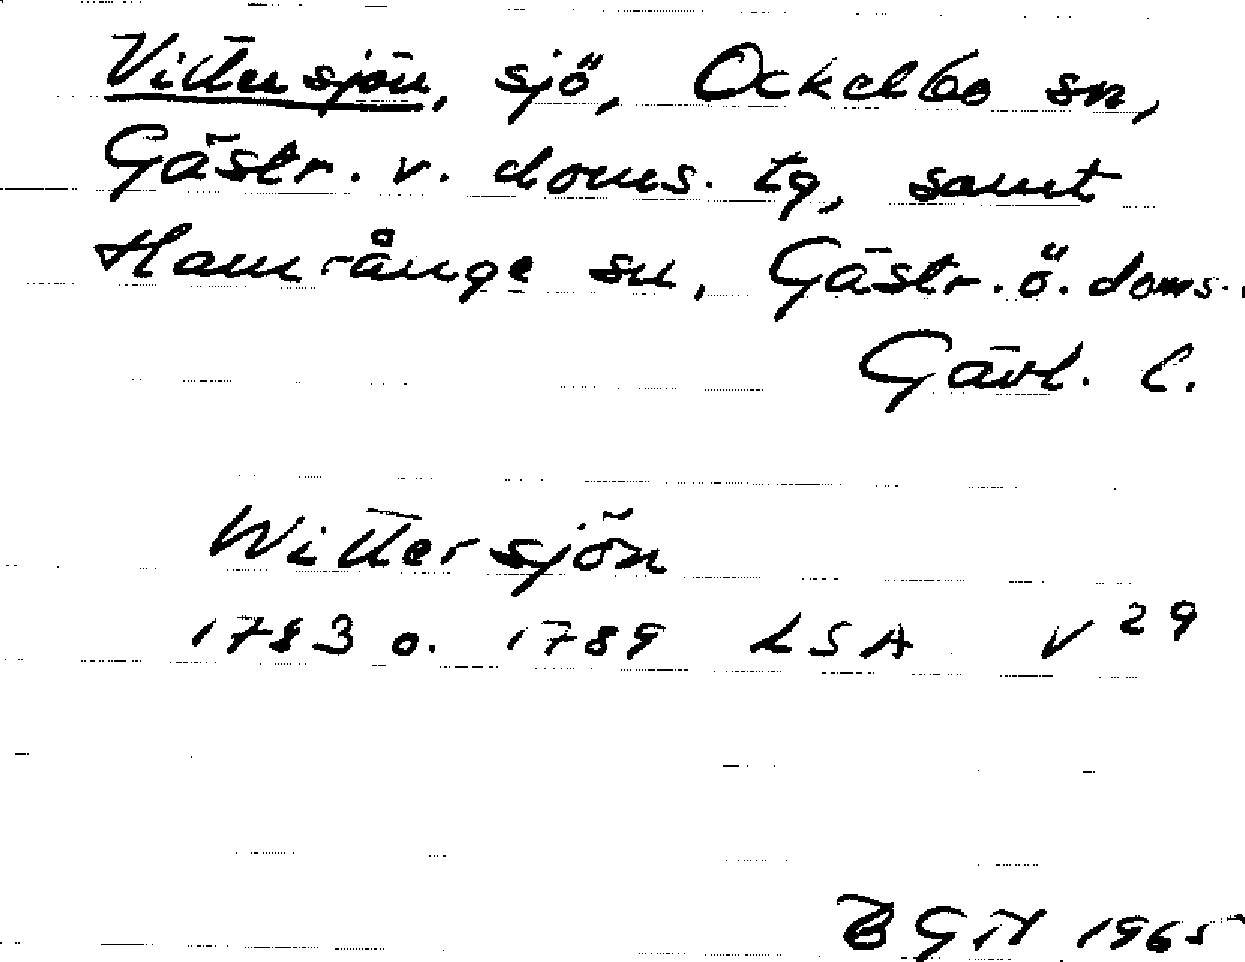 Vittersjön, sjö, Ockelbo sn,
Gästr. v. doms. tg, samt
Hamrånge sn, Gästr. ö. doms.
Gävl. l.
Wittersjön
1783 o. 1789 LSA V 29
1965